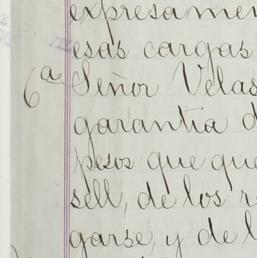 expresamen
esas cargas
6ª Señor Velas
garantia d
pesos que que
sell, de los r
garse, y de l